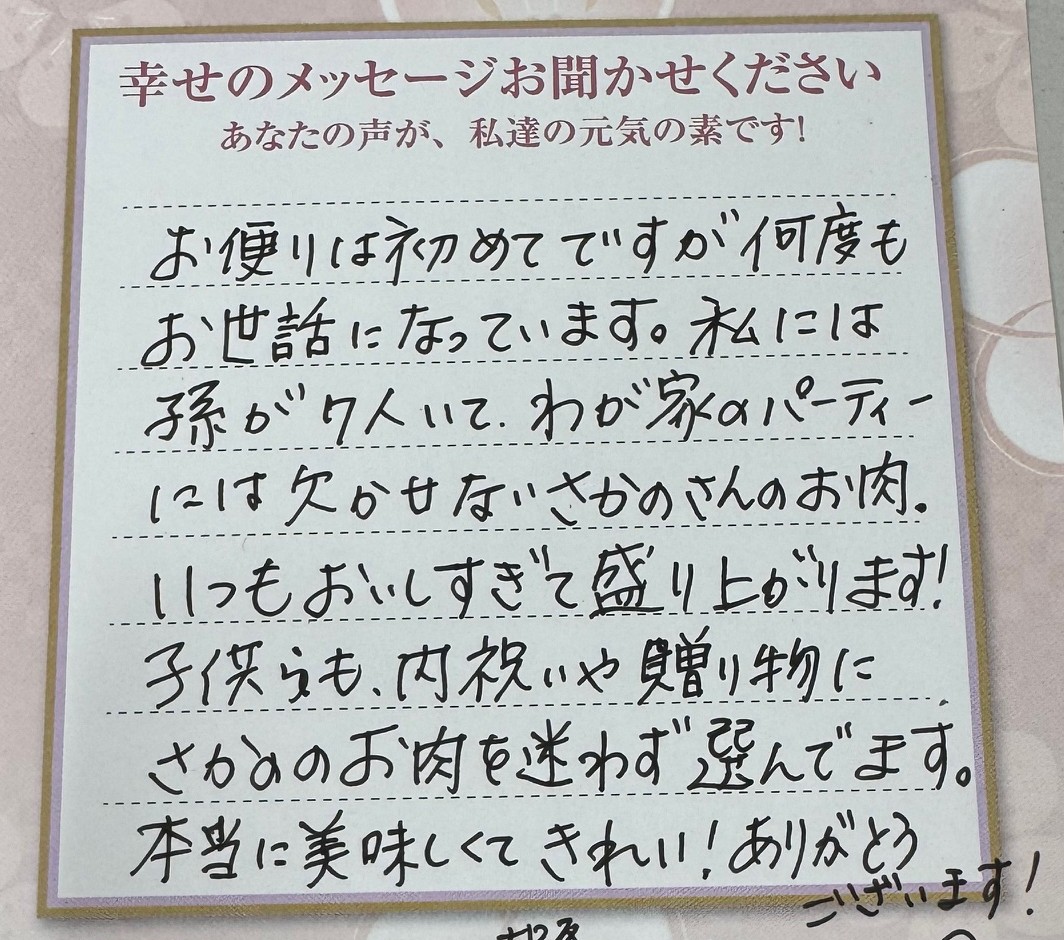 幸せのメッセージお聞かせください
あなたの声が、私達の元気の素です!
お便りは初めてですが何度も
お世話になっています。私には
孫が7人いて、わが家のパーティー
には欠かせないさかのさんのお肉。
いつもおいしすぎて盛り上がります!
子供らも、内祝いや贈り物に
さかののお肉を迷わず選んでます。
本当に美味しくてきれい!ありがとう
ございます!